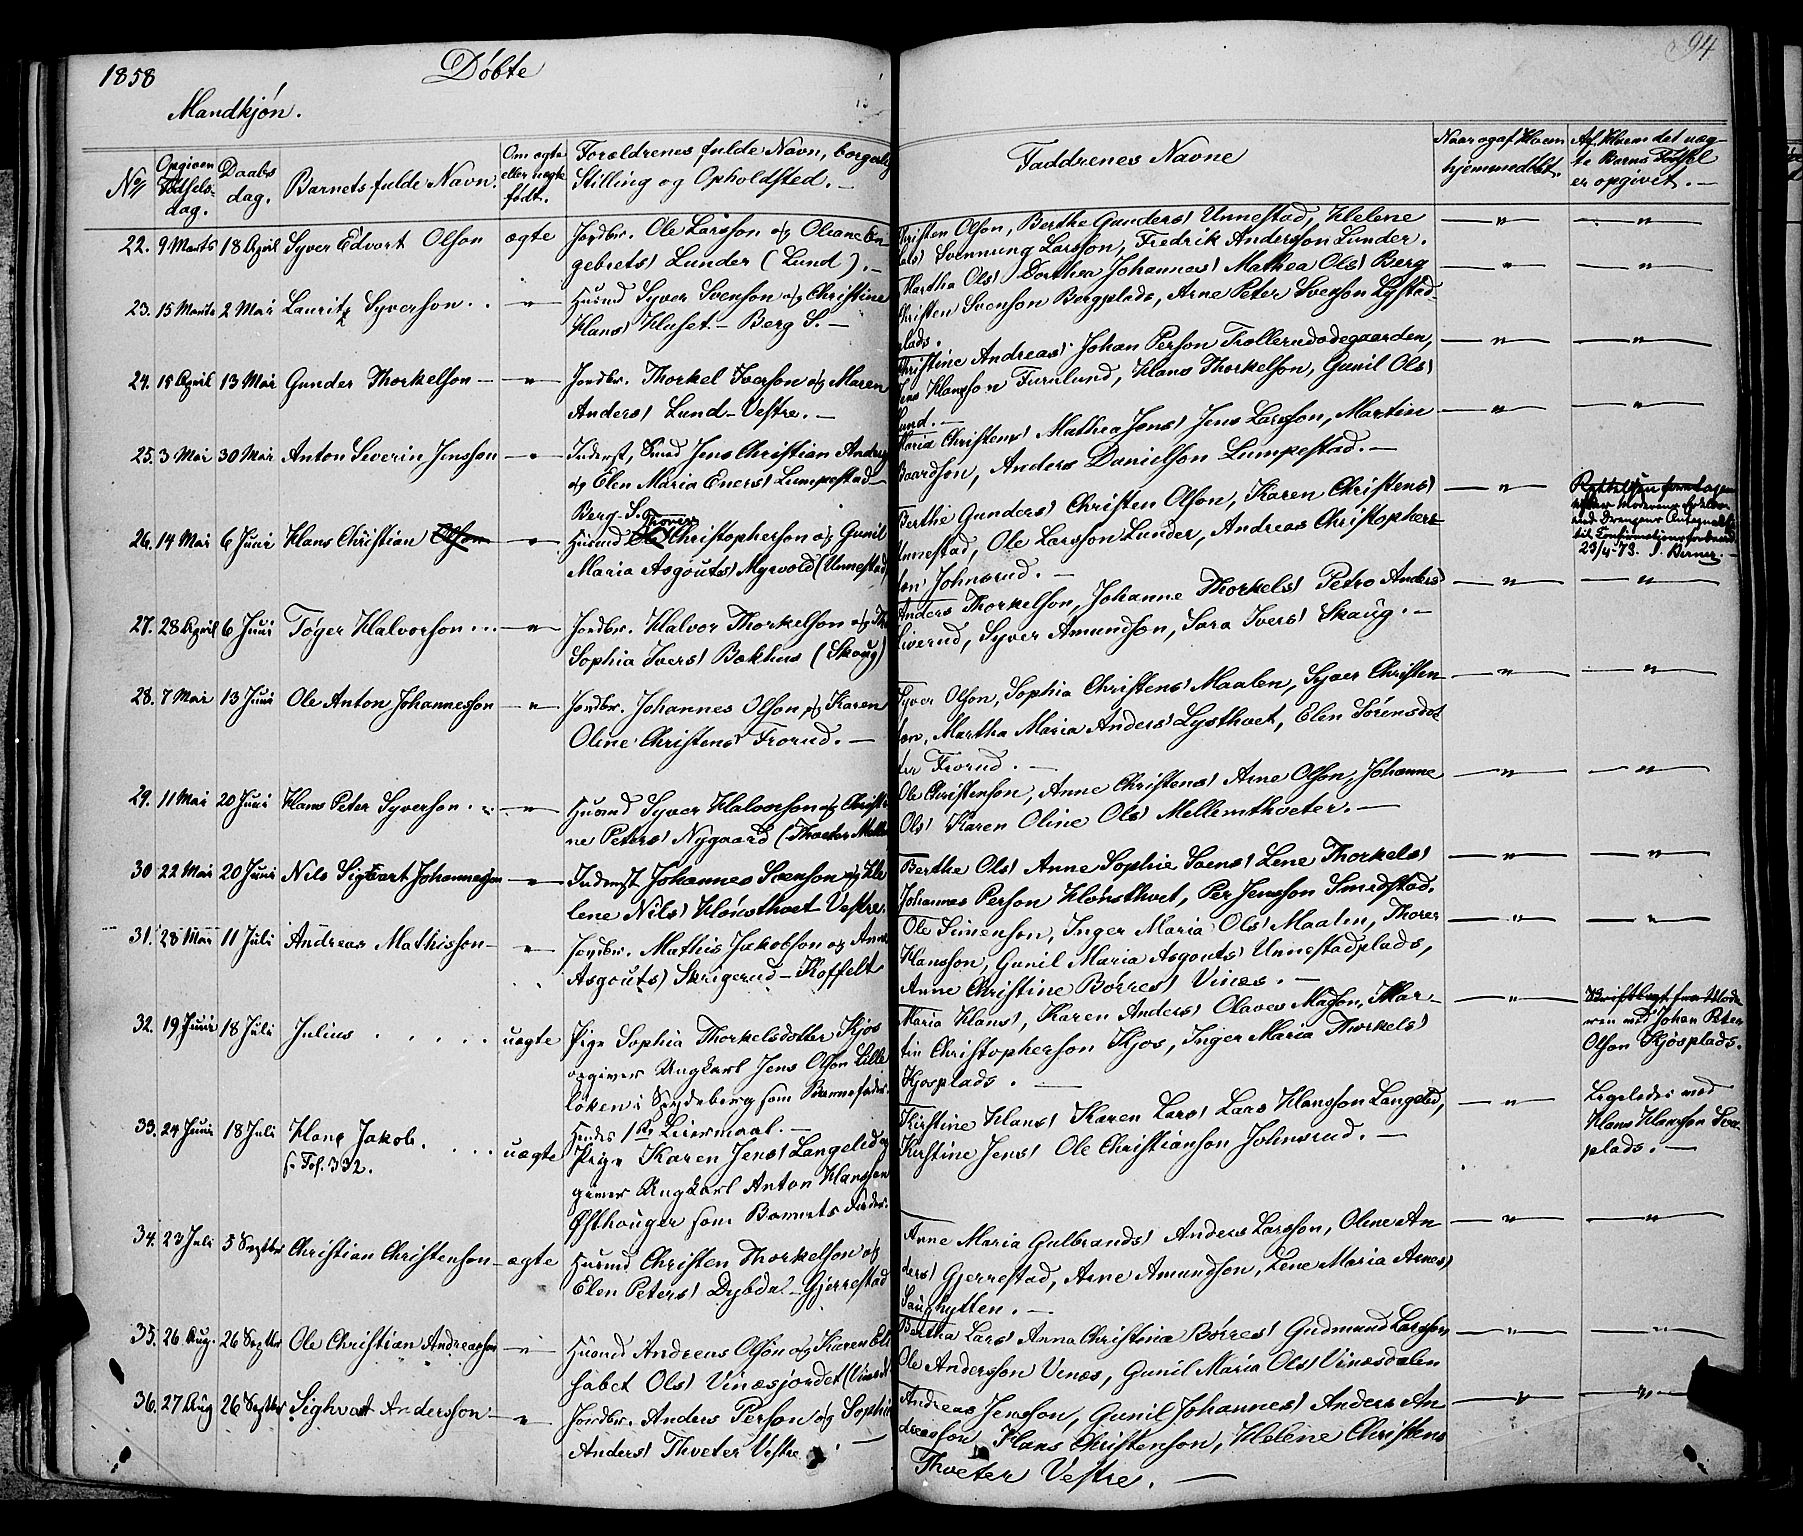 1858 Döbte
Mandkjön.
94
No Opgiven Fødselsdag. Daabsdag. Barnets fulde Navn. Om ægte eller uægte født. Forældrenes fulde Navn, borgerlig Stilling og Opholdsted. Faddrenes Navne Naar og af Hvem hjemmedöbt. Af Hvem det uægte Barns Födsel er opgivet.
22. 9 Marts 18 April Syver Edvart Olson ægte Jordbr. Ole Larsson og Oliane En-
gebrets) Lunder (Lund).
Christen Olson, Berthe Gunders) Unnestad, Helene
Svennung Larsson, Fredrik Andersson Lunder.
23. 15 Marts 2 Mai Lauritz Syverson. " Husmd Syver Svenson og Christine
Hans) Huset - Berg S.
Martha Ols) Dorthea Johannes) Mathea Ols) Berg
Christen Svenson Bergplads, Arne Peter Svenson Lystad-
plads.
24. 15 April 13 Mai Gunder Thorkelson " Jordbr. Thorkel Iverson og Maren
Anders) Lund - Vestre.
Christine Andreas) Johan Person Trollerudødegaarden,
Jens Hansson Furulund, Hans Thorkelson, Gunil Ols)
Lund.
25. 3 Mai 30 Mai Anton Severin Jensson " Inderst, Smed Jens Christian Anders
og Elen Maria Eners) Lumpestad
Berg S.
Maria Christens) Mathea Jens) Jens Larsson, Martin
Baardson, Anders Danielson Lumpestad.
26. 14 Mai 6 Juni Hans Christian Olson " Husmd Ole Thorer Christopherson og Gunil
Maria Asgouts) Myrvold (Unnestad)
Berthe Gunders) Christen Olson, Karen Christens)
Unnestad, Ole Larsson Lunder, Andreas Christophers-
son Johnsrud.
Rettelsen foretagen
efter Moderens
ved Drengens Antagelse
til Confirmationsforbered
23/4-73.
27. 28 April 6 Juni Töger Halvorson " Jordbr. Halvor Thorkelson og
Sophia Ivers) Bakhus (Skaug)
Anders Thorkelson, Johanne Thorkels) Petro Anders)
Liverud, Syver Amundson, Sara Ivers) Skaug.
28. 7 Mai 13 Juni Ole Anton Johannesson " Jordbr. Johannes Olson og Karen
Oline Christens) Frorud.
Syver Olson, Sophia Christens) Maalen, Syver Christen-
son, Martha Maria Anders) Lysthvet, Elen Sörensdot-
ter Frorud.
29. 11 Mai 20 Juni Hans Peter Syverson " Husmd Syver Halvorson og Christi-
ne Peters) Nygaard (Thveter Mellem
Ole Christenson, Anne Christens) Arne Olson, Johanne
Ols) Karen Oline Ols) Mellemthveter.
30 22 Mai 20 Juni Nils Sigvart Johannesson " Inderst Johannes Svenson og He-
lene Nils) Hönsthvet Vestre.
Berthe Ols) Anne Sophie Svens) Lene Thorkels)
Johannes Person Hönsthvet, Per Jensson Smedstad.
31. 28 Mai 11 Juli Andreas Mathisson " Jordbr. Mathis Jakobson og Anne
Asgouts) Skrigerud - Koffelt
Ole Simenson, Inger Maria Ols) Maalen, Thorer
Hansson, Gunil Maria Asgouts) Unnestadplads,
Anne Christine Börres) Vines.
32. 19 Juni 18 Juli Julius uægte Pige Sophia Thorkelsdotter Kjos
opgiver Ungkarl Jens Olson Lille
löken i Spydeberg som Barnefader.
Hendes 1ste Leiermaal.
Maria Hans), Karen Anders) Olaves Madson, Mar-
tin Christopherson Kjos, Inger Maria Thorkels)
Kjosplads.
Skriftlagt for Mode-
ren ved Johan Peter
Olson Kjosplads.
33. 24 Juni 18 Juli Hans Jakob.
s. Fol. 332.
uægte Pige Karen Jens) Langelid op-
giver Ungkarl Anton Hansson
Østhouger som Barnets Fader.
Kirstine Hans) Karen Lars) Lars Hansson Langelid,
Kirstine Jens) Ole Christianson Johnsrud.
Ligeledes ved
Hans Hansson
plads.
34. 23 Juli 5 Septbr Christian Christenson ægte Husmd Christen Thorkelson og
Elen Peters) Dybdal - Gjerrestad
Anne Maria Gulbrands) Anders Larsson, Oline An-
ders) Gjerrestad, Arne Amundson, Lene Maria Arnes)
Saughytten.
35. 26 Aug. 26 Septbr Ole Christian Andreasson " Husmd Andreas Olson og Karen Eli-
sabet Ols) Vinæsjordet (Vinæs)
Bertha Lars) Anna Christina Börres) Gudmund Larsson
Ole Andersson Vines, Gunil Maria Ols) Vinæsdalen
36. 27 Aug 26 Septbr Sighvart Andersson " Jordbr. Anders Person og Sophia
Anders) Thveter Vestre.
Andreas Jensson, Gunil Johannes) Anders An-
dreasson, Hans Christenson, Helene Christens
Thveter Vestre.